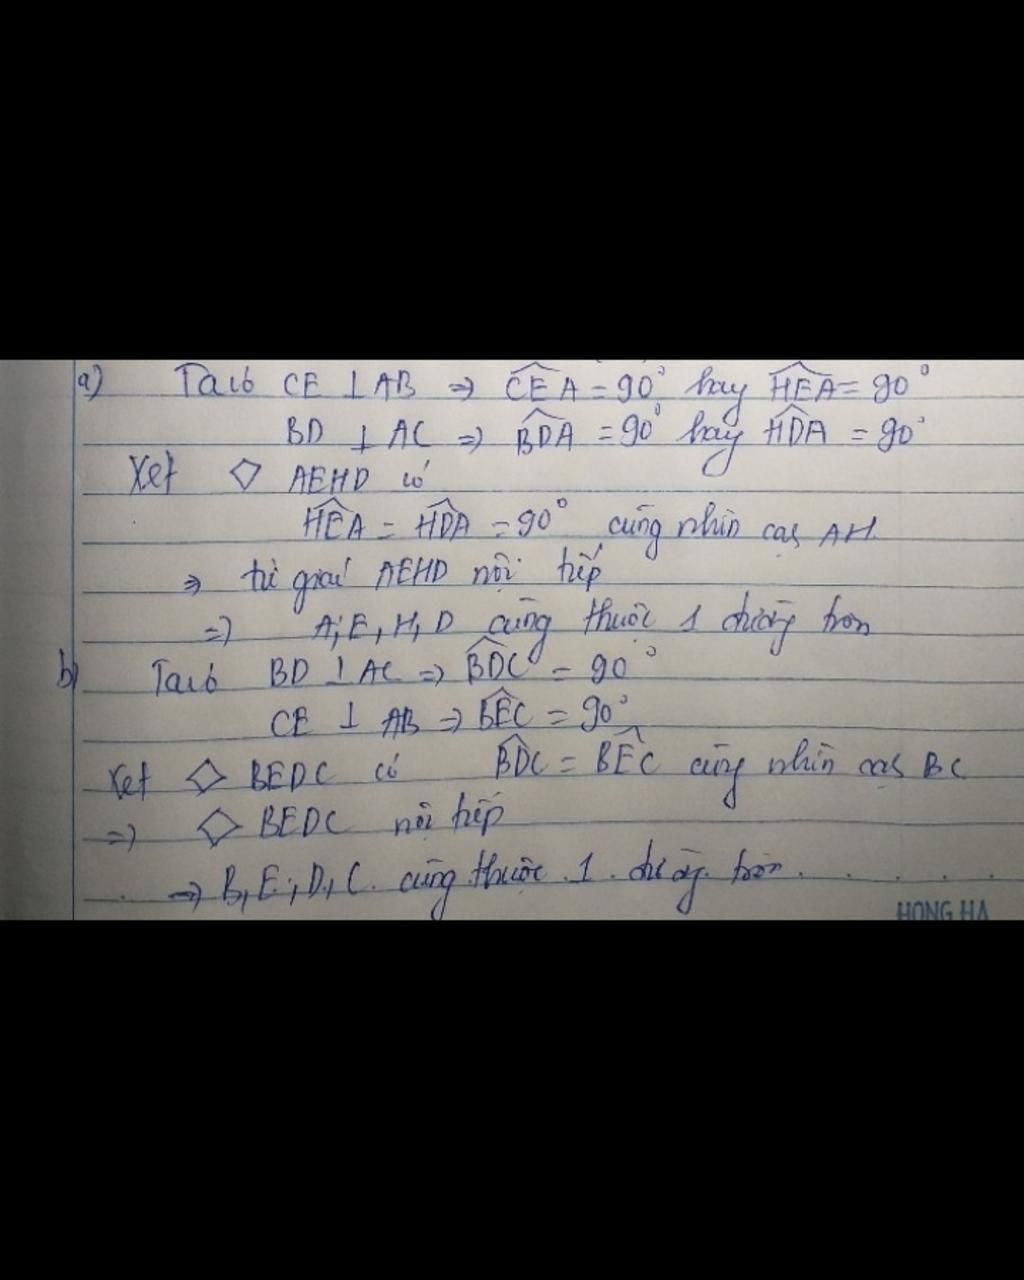 a) Ta có CE ⊥ AB ⇒ \widehat{CEA} = 90° hay \widehat{HEA} = 90°
BD ⊥ AC ⇒ \widehat{BDA} = 90° hay \widehat{HDA} = 90°
Xét ◇ AEHD có
\widehat{HEA} = \widehat{HDA} = 90° cùng nhìn cạh AH
⇒ tứ giác AEHD nội tiếp
⇒ A, E, H, D cùng thuộc 1 đường tròn
b) Ta có BD ⊥ AC ⇒ \widehat{BDC} = 90°
CE ⊥ AB ⇒ \widehat{BEC} = 90°
Xét ◇ BEDC có \widehat{BDC} = \widehat{BEC} cùng nhìn cạh BC
⇒ ◇ BEDC nội tiếp
⇒ B, E, D, C cùng thuộc 1 đường tròn
HONG HA